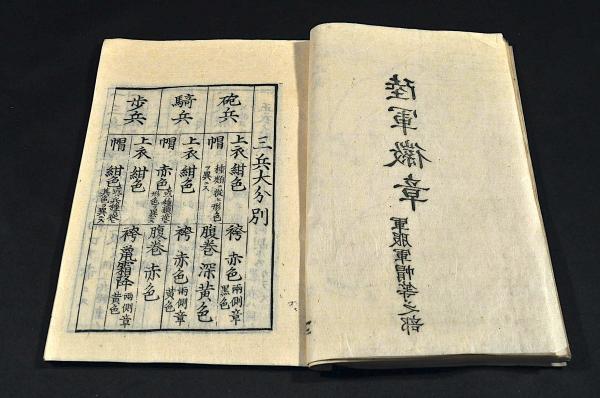 陸軍徽章
軍服軍帽等之部
三兵大分別
砲兵
上衣 紺色
袴 赤色 兩側章黒色
帽
腹巻 深黄色
騎兵
上衣 紺色
袴 赤色 兩側章黄色
帽 赤色
腹巻 赤色
歩兵
上衣 紺色
袴 霜降 兩側章黄色
帽 紺色